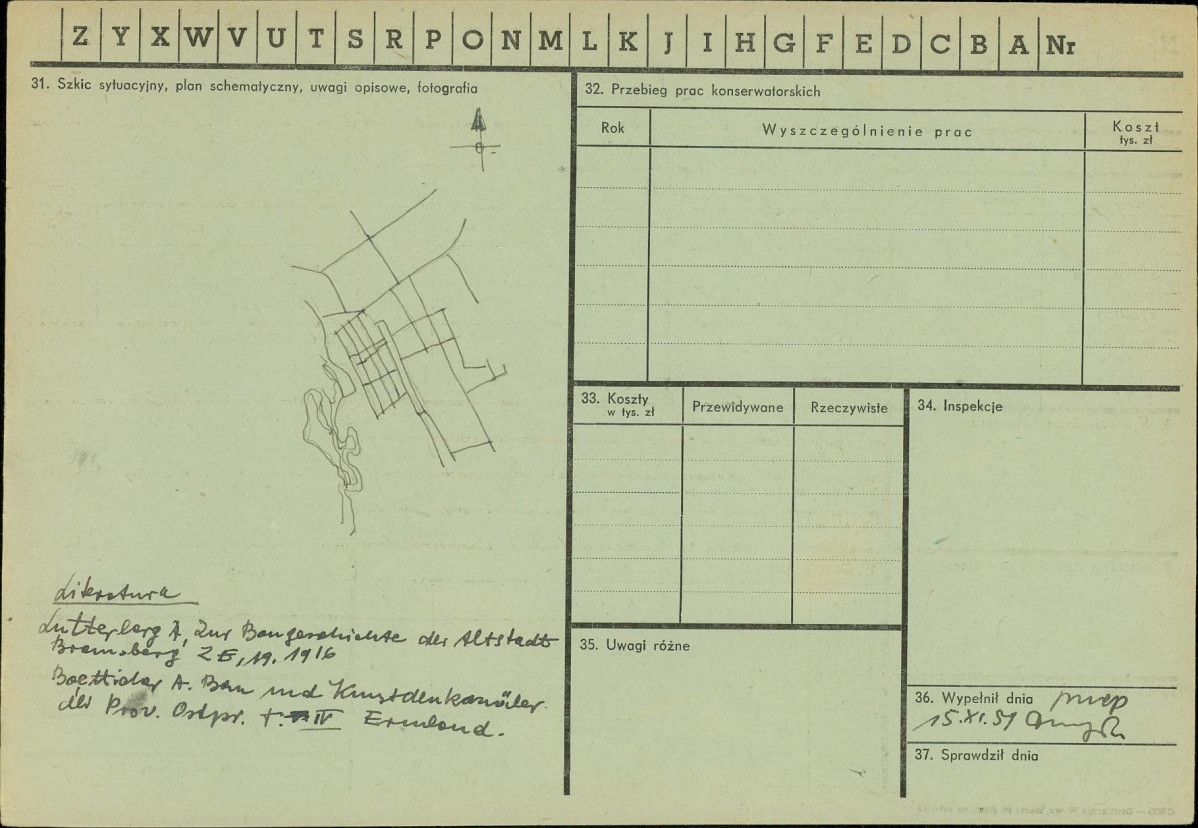 Z Y X W V U T S R P O N M L K J I H G F E D C B A Nr
31. Szkic sytuacyjny, plan schematyczny, uwagi opisowe, fotografia
Literatura
Lutterberg A, Zur Baugeschichte der Altstadt
Braunsberg, ZE, 19. 1916
Boetticher A. Bau und Kunstdenkmäler
der Prov. Ostpr. t. IV Ermland.
32. Przebieg prac konserwatorskich
Rok
Wyszczególnienie prac
Koszt
tys. zł
33. Koszty
w tys. zł
Przewidywane
Rzeczywiste
34. Inspekcje
35. Uwagi różne
36. Wypełnił dnia
15.XI.59
37. Sprawdził dnia